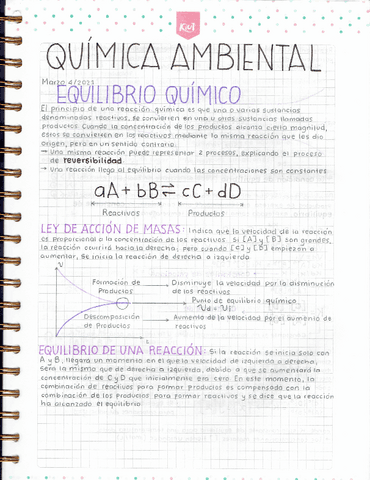 KiUT
QUÍMICA AMBIENTAL
Marzo 4/2021
EQUILIBRIO QUÍMICO
El principio de una reacción química es que una o varias sustancias
denominadas reactivos, se convierten en una u unas sustancias llamadas
productos. Cuando la concentración de los productos alcanza cierta magnitud,
éstos se convierten en los reactivos mediante la misma reacción que les dio
origen, pero en un sentido contrario.
→ una misma reacción puede representar 2 procesos, explicando el proceso
de reversibilidad
→ Una reacción llega al equilibrio cuando las concentraciones son constantes
aA + bB ⇌ cC + dD
Reactivos Productos
LEY DE ACCIÓN DE MASAS: Indica que la velocidad de la reacción
es proporcional a la concentración de los reactivos. Si [A] y [B] son grandes,
la reacción ocurrirá hacia la derecha; pero cuando [C] y [D] empiezan a
aumentar, se inicia la reacción de derecha a izquierda.
V
Formación de Productos → Disminuye la velocidad por la disminución
de los reactivos
Punto de equilibrio químico
Vd = Vi
Descomposición de Productos → Aumento de la velocidad por el aumento de
reactivos
EQUILIBRIO DE UNA REACCIÓN: Si la reacción se inicia solo con
A y B, llegará un momento en el que la velocidad de izquierda a derecha,
será la misma que de derecha a izquierda, debido a que se aumentará la
concentración de C y D que inicialmente era cero. En este momento, la
combinación de reactivos para formar productos es compensada con la
combinación de los productos para formar reactivos y se dice que la reacción
ha alcanzado el equilibrio.